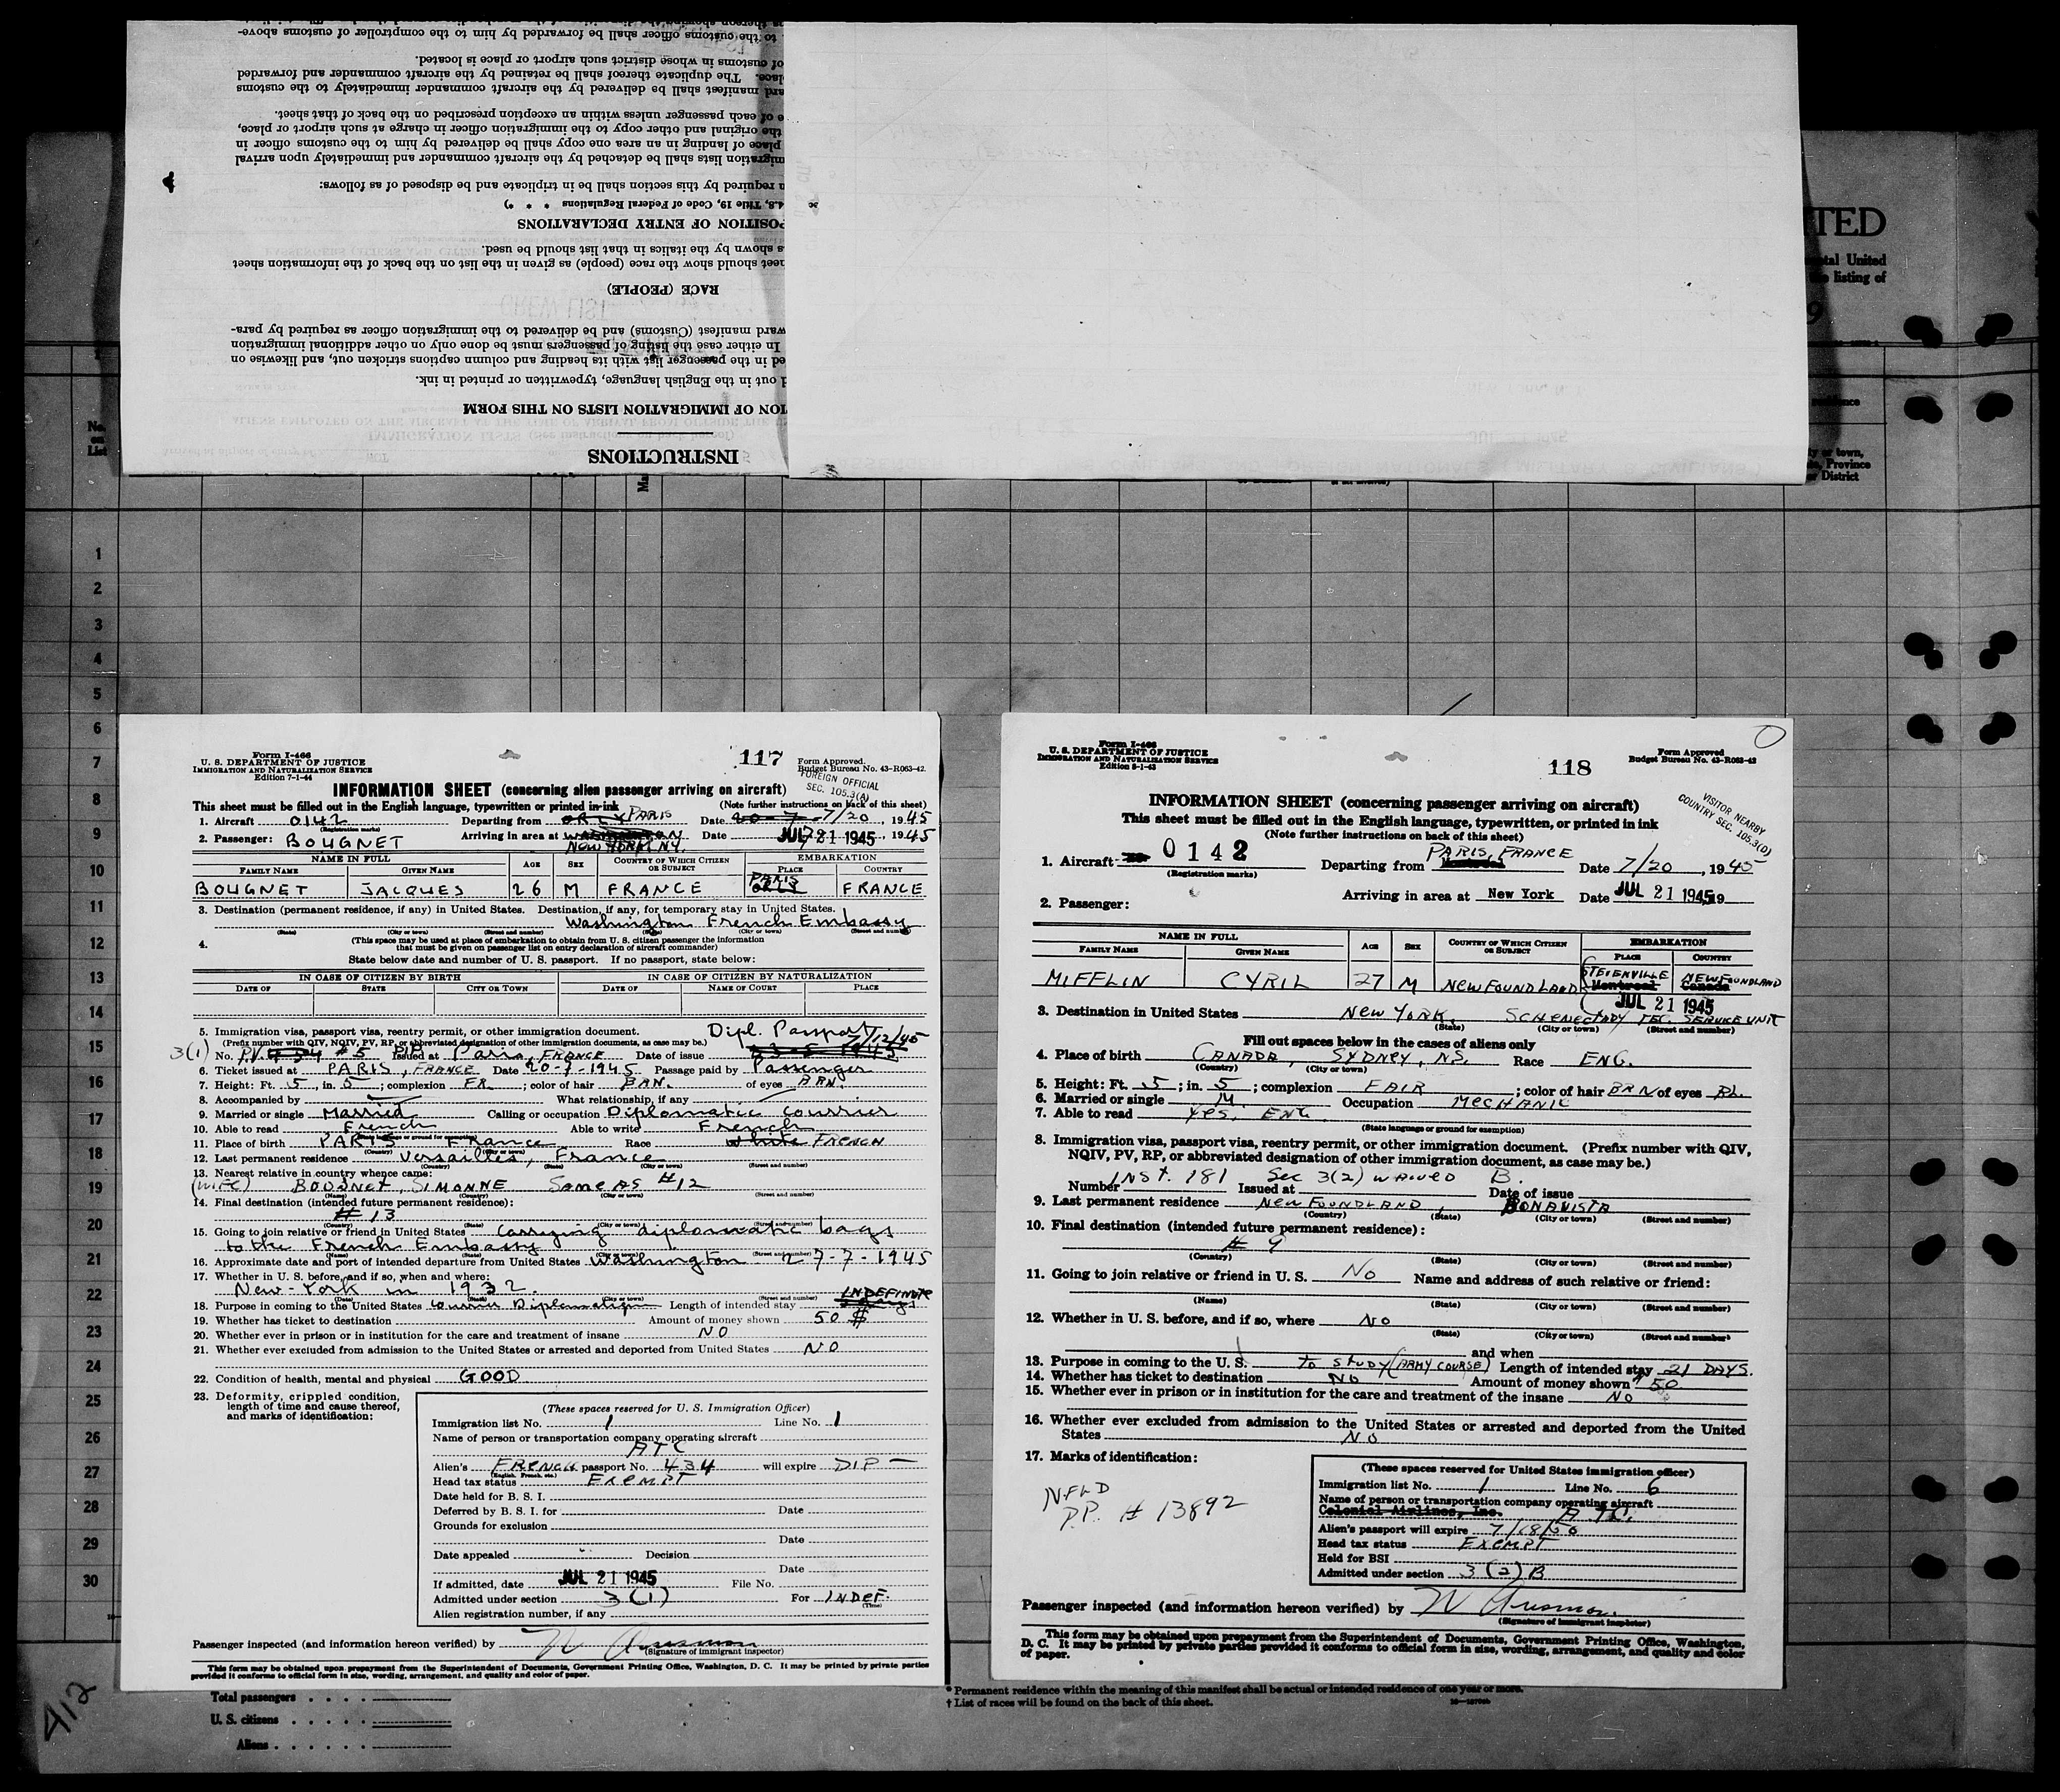 to the customs officer shall be forwarded by him to the comptroller of customs above-
of customs in whose district such airport or place is located.
place. The duplicate thereof shall be retained by the aircraft commander and forwarded
manifest shall be delivered by the aircraft commander immediately to the customs
of each passenger unless within an exception prescribed on the back of that sheet.
the original and other copy to the immigration officer in charge at such airport or place,
place of landing in an area one copy shall be delivered by him to the customs officer in
migration lists shall be detached by the aircraft commander and immediately upon arrival
required by this section shall be in triplicate and be disposed of as follows:
4.8, Title 19, Code of Federal Regulations * * *)
POSITION OF ENTRY DECLARATIONS
as shown by the italics in that list should be used.
sheet should show the race (people) as given in the list on the back of the information sheet
RACE (PEOPLE)
ward manifest (Customs) and be delivered to the immigration officer as required by para-
In either case the listing of passengers must be done only on other additional immigration
ed in the passenger list with its heading and column captions stricken out, and likewise on
out in the English language, typewritten or printed in ink.
ION OF IMMIGRATION LISTS ON THIS FORM
INSTRUCTIONS
ITED
United
listing of
9
or town,
Province
or District
No. on List
1
2
3
4
5
6
7
8
9
10
11
12
13
14
15
16
17
18
19
20
21
22
23
24
25
26
27
28
29
30
Form I-466
U. S. DEPARTMENT OF JUSTICE
IMMIGRATION AND NATURALIZATION SERVICE
Edition 7-1-44
117
Form Approved.
Budget Bureau No. 43-R063-42.
FOREIGN OFFICIAL
SEC. 105.3(A)
INFORMATION SHEET (concerning alien passenger arriving on aircraft)
This sheet must be filled out in the English language, typewritten or printed in ink (Note further instructions on back of this sheet)
1. Aircraft 0142 Departing from ORLY PARIS Date 20-7- 7/20, 1945
(Registration marks)
2. Passenger: BOUGNET Arriving in area at WASHINGTON Date JUL 21 1945, 1945
NEW YORK NY.
NAME IN FULL AGE SEX COUNTRY OF WHICH CITIZEN OR SUBJECT EMBARKATION
FAMILY NAME GIVEN NAME PLACE COUNTRY
BOUGNET JACQUES 26 M FRANCE PARIS FRANCE
3. Destination (permanent residence, if any) in United States. Destination, if any, for temporary stay in United States.
Washington French Embassy
(State) (City or town) (Street and number) (State) (City or town) (Street and number)
4. (This space may be used at place of embarkation to obtain from U. S. citizen passenger the information
that must be given on passenger list on entry declaration of aircraft commander)
State below date and number of U. S. passport. If no passport, state below:
IN CASE OF CITIZEN BY BIRTH IN CASE OF CITIZEN BY NATURALIZATION
DATE OF STATE CITY OR TOWN DATE OF NAME OF COURT PLACE
5. Immigration visa, passport visa, reentry permit, or other immigration document. Dipl. Passport
(Prefix number with QIV, NQIV, PV, RP, or abbreviated designation of other immigration documents, as case may be.) 7/12/45
3(1) No. P.V. #5 Issued at Paris, FRANCE Date of issue
6. Ticket issued at PARIS, FRANCE Date 20-7-1945 Passage paid by Passenger
7. Height: Ft. 5, in. 5; complexion FR.; color of hair BRN. of eyes BRN.
8. Accompanied by What relationship, if any
9. Married or single Married Calling or occupation Diplomatic courrier
10. Able to read French Able to write French
11. Place of birth PARIS France Race White FRENCH
(Country) (City or town)
12. Last permanent residence Versailles, France
(Country) (State) (City or town) (Street and number)
13. Nearest relative in country whence came:
(WIFE) BOUGNET, SIMONNE SAME AS #12
(Name) (Country) (City or town) (Street and number)
14. Final destination (intended future permanent residence):
# 13
(Country) (State) (City or town) (Street and number)
15. Going to join relative or friend in United States Carrying diplomatic bags
to the French Embassy
(Name) (State) (City or town) (Street and number)
16. Approximate date and port of intended departure from United States Washington 27-7-1945
17. Whether in U. S. before, and if so, when and where:
New-York in 1932.
(Date) (State) (City or town) (Street and number)
18. Purpose in coming to the United States Courrier Diplomatique Length of intended stay INDEFINITE
19. Whether has ticket to destination Amount of money shown 50 $
20. Whether ever in prison or in institution for the care and treatment of insane NO
21. Whether ever excluded from admission to the United States or arrested and deported from United States NO
22. Condition of health, mental and physical GOOD
23. Deformity, crippled condition,
length of time and cause thereof,
and marks of identification:
(These spaces reserved for U. S. Immigration Officer)
Immigration list No. 1 Line No. 1
Name of person or transportation company operating aircraft
ATC
Alien's FRENCH passport No. 434 will expire DIP -
(English, French, etc.)
Head tax status EXEMPT
Date held for B. S. I.
Deferred by B. S. I. for Date
Grounds for exclusion
Date
Date appealed Decision
Date
If admitted, date JUL 21 1945 File No.
Admitted under section 3(1) For INDEF.
(Time)
Alien registration number, if any
Passenger inspected (and information hereon verified) by
(Signature of immigrant inspector)
This form may be obtained upon prepayment from the Superintendent of Documents, Government Printing Office, Washington, D. C. It may be printed by private parties
provided it conforms to official form in size, wording, arrangement, and quality and color of paper.
Form I-466
U. S. DEPARTMENT OF JUSTICE
IMMIGRATION AND NATURALIZATION SERVICE
Edition 8-1-43
118
Form Approved
Budget Bureau No. 43-R063-42
VISITOR NEARBY
COUNTRY SEC. 105.3(D)
INFORMATION SHEET (concerning passenger arriving on aircraft)
This sheet must be filled out in the English language, typewritten, or printed in ink
(Note further instructions on back of this sheet)
1. Aircraft 0142 Departing from PARIS, FRANCE Date 7/20, 1945
(Registration marks)
Arriving in area at New York Date JUL 21 1945 19
2. Passenger:
NAME IN FULL AGE SEX COUNTRY OF WHICH CITIZEN OR SUBJECT EMBARKATION
FAMILY NAME GIVEN NAME PLACE COUNTRY
MIFFLIN CYRIL 27 M NEWFOUNDLAND STEVENVILLE Montreal NEWFOUNDLAND Canada
JUL 21 1945
3. Destination in United States NEW YORK, SCHENECTADY TEC. SERVICE UNIT
(State) (City or town) (Street and number)
Fill out spaces below in the cases of aliens only
4. Place of birth CANADA, SYDNEY, N.S. Race ENG.
(Country) (City or town)
5. Height: Ft. 5; in. 5; complexion FAIR; color of hair BRN of eyes BL.
6. Married or single M. Occupation MECHANIC
7. Able to read YES. ENG
(State language or ground for exemption)
8. Immigration visa, passport visa, reentry permit, or other immigration document. (Prefix number with QIV,
NQIV, PV, RP, or abbreviated designation of other immigration document, as case may be.)
Number INST. 181 Issued at Sec 3(2) waived B. Date of issue
9. Last permanent residence NEWFOUNDLAND, BONAVISTA
(Country) (State) (City or town) (Street and number)
10. Final destination (intended future permanent residence):
# 9
(Country) (State) (City or town) (Street and number)
11. Going to join relative or friend in U. S. NO Name and address of such relative or friend:
(Name) (State) (City or town) (Street and number)
12. Whether in U. S. before, and if so, where NO
(State) (City or town) (Street and number)
and when
13. Purpose in coming to the U. S. TO STUDY (ARMY COURSE) Length of intended stay 21 DAYS.
14. Whether has ticket to destination NO Amount of money shown $50
15. Whether ever in prison or in institution for the care and treatment of the insane NO
16. Whether ever excluded from admission to the United States or arrested and deported from the United
States NO
17. Marks of identification:
NFLD
P.P. # 13892
(These spaces reserved for United States immigration officer)
Immigration list No. 1 Line No. 6
Name of person or transportation company operating aircraft
Colonial Airlines, Inc. A.T.C.
Alien's passport will expire 7/18/50
Head tax status EXEMPT
Held for BSI
Admitted under section 3(2)B
Passenger inspected (and information hereon verified) by
(Signature of immigrant inspector)
This form may be obtained upon prepayment from the Superintendent of Documents, Government Printing Office, Washington,
D. C. It may be printed by private parties provided it conforms to official form in size, wording, arrangement, and quality and color
of paper.
* Permanent residence within the meaning of this manifest shall be actual or intended residence of one year or more.
† List of races will be found on the back of this sheet.
Total passengers
U. S. citizens
Aliens
412